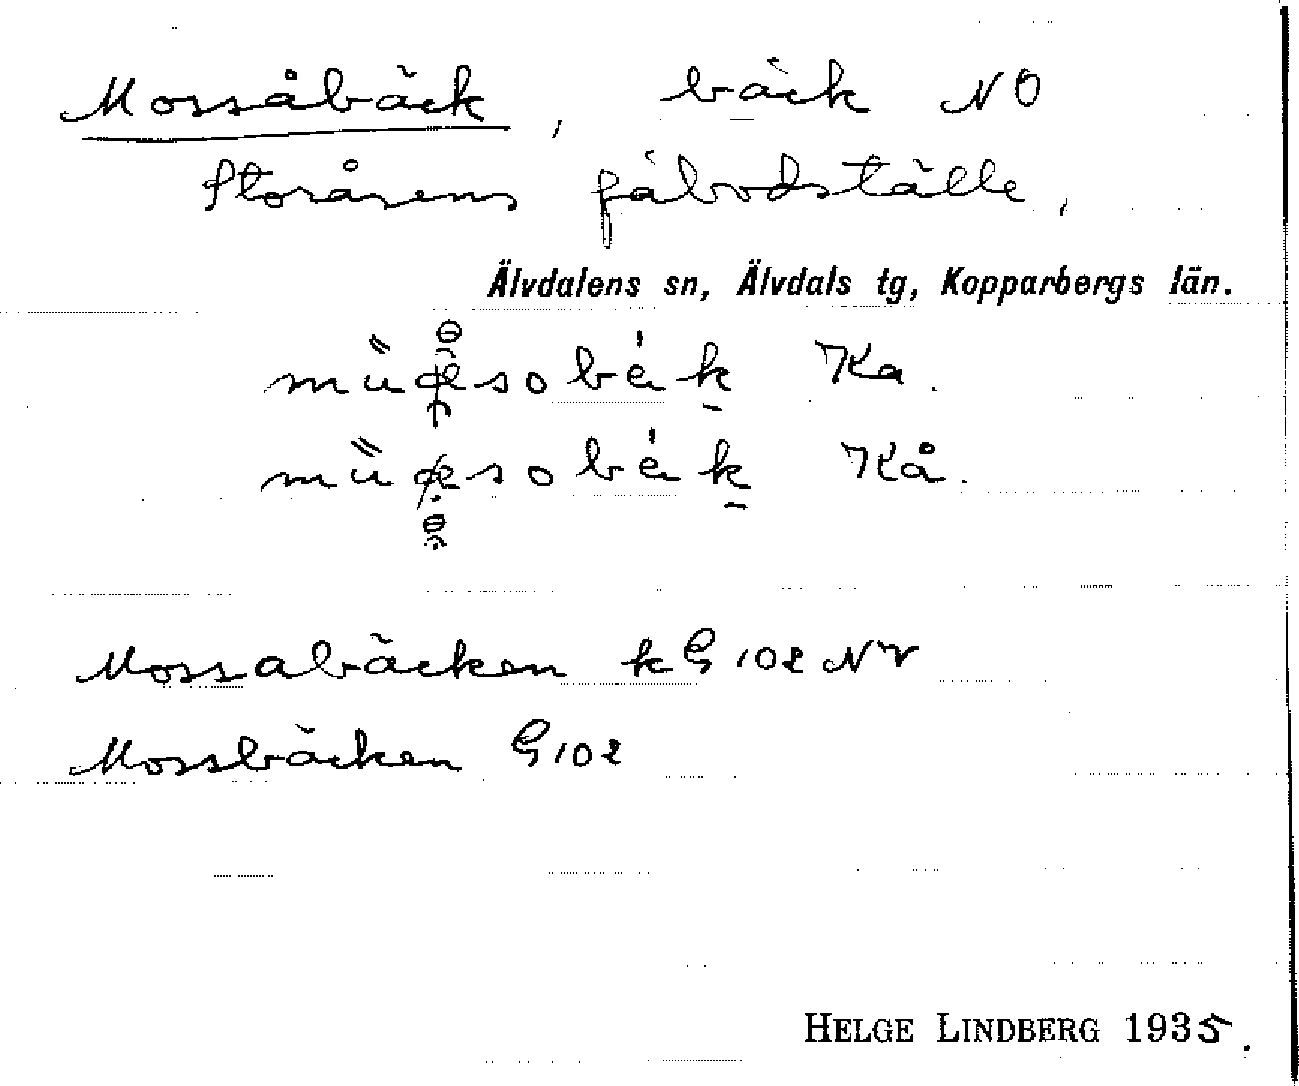 Mossåbäck, bäck NO
Storåsens fäbodställe,
Älvdalens sn, Älvdals tg, Kopparbergs län.
Ka.
Kå.
Mossabäcken kG 102 NV
Mossbäcken G 102
HELGE LINDBERG 1935.